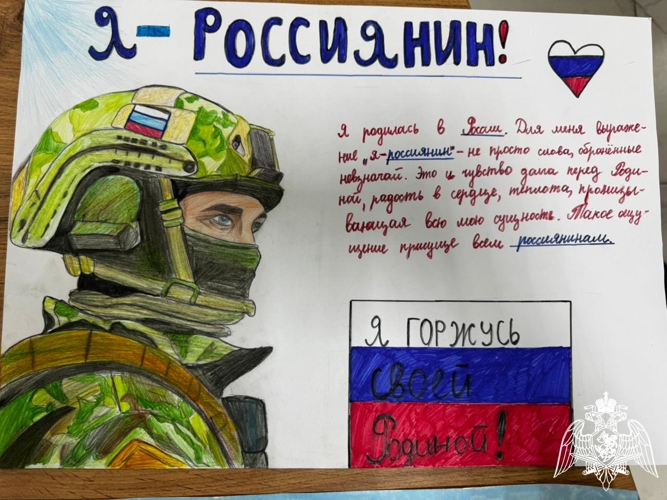 Я - РОССИЯНИН!
Я родилась в . Для меня выраже-
ние „я-россиянин" - не просто слова, обронённые
невзначай. Это и чувство долга перед Роди-
ной, радость в сердце, теплота, пронизы-
вающая всю мою сущность. Такое ощу-
щение присуще всем россиянинам.
Я ГОРЖУСЬ
СВОЕЙ
Родиной!